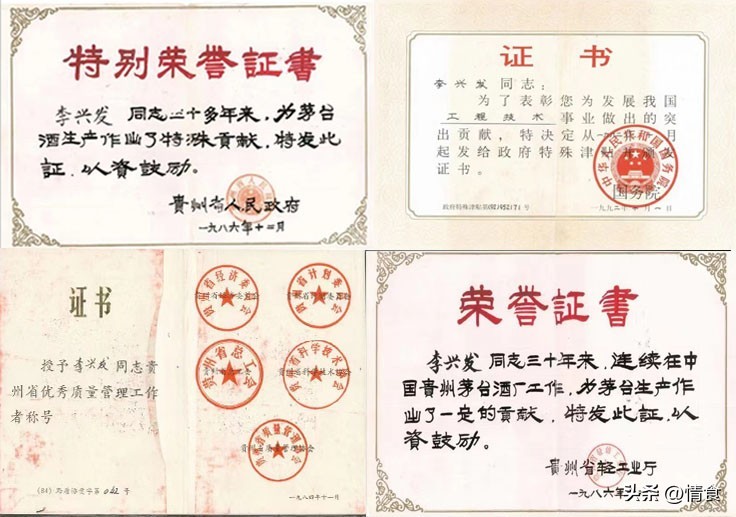 特别荣誉証書
李兴发 同志三十多年来,为茅台
酒生产作出了特殊贡献,特发此
証,以資鼓励。
貴州省人民政府
一九八六年十二月
证书
李兴发同志:
为了表彰您为发展我国
工程技术 事业做出的突
出贡献,特决定从一九 月
起发给政府特殊津贴
证书。
中华人民共和国国务院
国务院
一九九二年 月一日
证书
授予李兴发同志贵
州省优秀质量管理工作
者称号
(84)
贵州省经济委员会
贵州省计划委员会
贵州省总工会
贵州省科学技术协会
贵州省质量管理协会
一九八四年十一月
荣誉証書
李兴发 同志三十年来,连续在中
国貴州茅台酒厂工作,为茅台生产作
出了一定的贡献,特发此証,以
資鼓励。
貴州省轻工业厅
一九八六年
头条 @情食